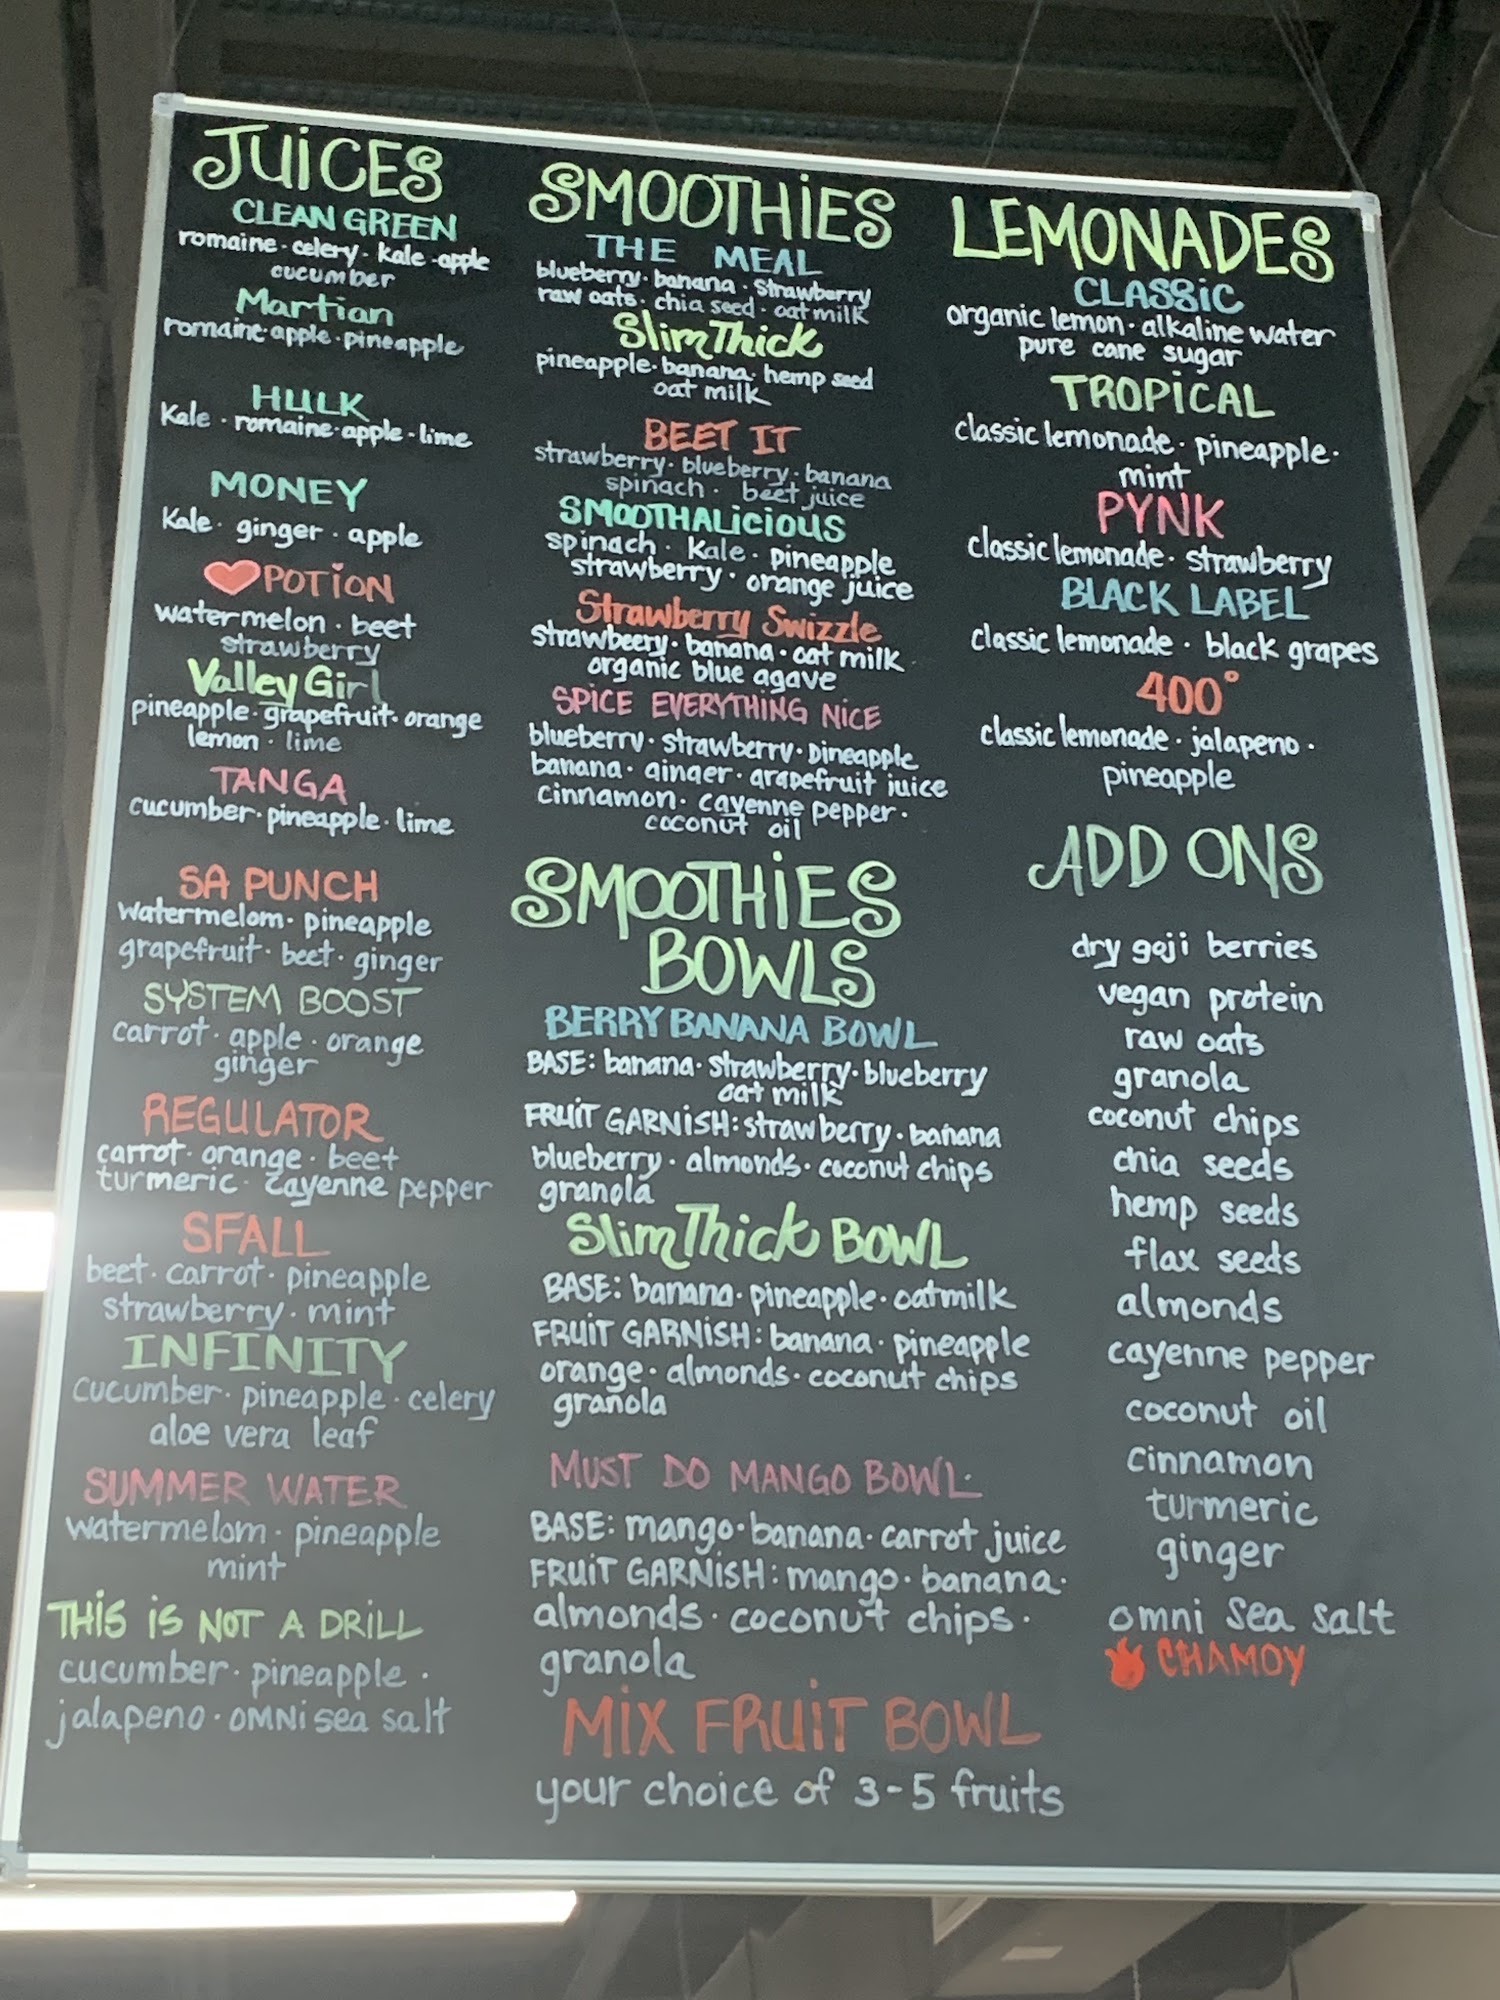 JUiCES
CLEAN GREEN
romaine · celery · kale · apple
cucumber
Martian
romaine · apple · pineapple
HULK
Kale · romaine · apple · lime
MONEY
Kale · ginger · apple
❤POTION
watermelon · beet
strawberry
Valley Girl
pineapple · grapefruit · orange
lemon · lime
TANGA
cucumber · pineapple · lime
SA PUNCH
watermelom · pineapple
grapefruit · beet · ginger
SYSTEM BOOST
carrot · apple · orange
ginger
REGULATOR
carrot · orange · beet
turmeric · cayenne pepper
SFALL
beet · carrot · pineapple
strawberry · mint
INFINITY
cucumber · pineapple · celery
aloe vera leaf
SUMMER WATER
watermelom · pineapple
mint
THiS iS NOT A DRILL
cucumber · pineapple ·
jalapeno · OMNi sea salt
SMOOTHiES
THE MEAL
blueberry · banana · strawberry
raw oats · chia seed · oat milk
SlimThick
pineapple · banana · hemp seed
oat milk
BEET IT
strawberry · blueberry · banana
spinach · beet juice
SMOOTHALiCiOUS
spinach · Kale · pineapple
strawberry · orange juice
Strawberry Swizzle
strawbeery · banana · oat milk
organic blue agave
SPICE EVERYTHING NiCE
blueberry · strawberry · pineapple
banana · ginger · grapefruit juice
cinnamon · cayenne pepper ·
coconut oil
SMOOTHiES
BOWLS
BERRY BANANA BOWL
BASE: banana · strawberry · blueberry
oat milk
FRUiT GARNiSH: strawberry · banana
blueberry · almonds · coconut chips
granola
SlimThick BOWL
BASE: banana · pineapple · oatmilk
FRUiT GARNiSH: banana · pineapple
orange · almonds · coconut chips
granola
MUST DO MANGO BOWL
BASE: mango · banana · carrot juice
FRUiT GARNiSH: mango · banana ·
almonds · coconut chips ·
granola
MiX FRUiT BOWL
your choice of 3-5 fruits
LEMONADES
CLASSiC
organic lemon · alkaline water
pure cane sugar
TROPiCAL
classic lemonade · pineapple ·
mint
PYNK
classic lemonade · strawberry
BLACK LABEL
classic lemonade · black grapes
400°
classic lemonade · jalapeno ·
pineapple
ADD ONS
dry goji berries
vegan protein
raw oats
granola
coconut chips
chia seeds
hemp seeds
flax seeds
almonds
cayenne pepper
coconut oil
cinnamon
turmeric
ginger
omni sea salt
CHAMOY